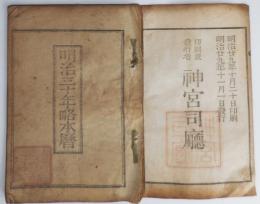 明治三十年略本暦
明治廿九年十月二十日印刷
明治廿九年十一月一日發行
印刷兼
發行者
神宮司廳